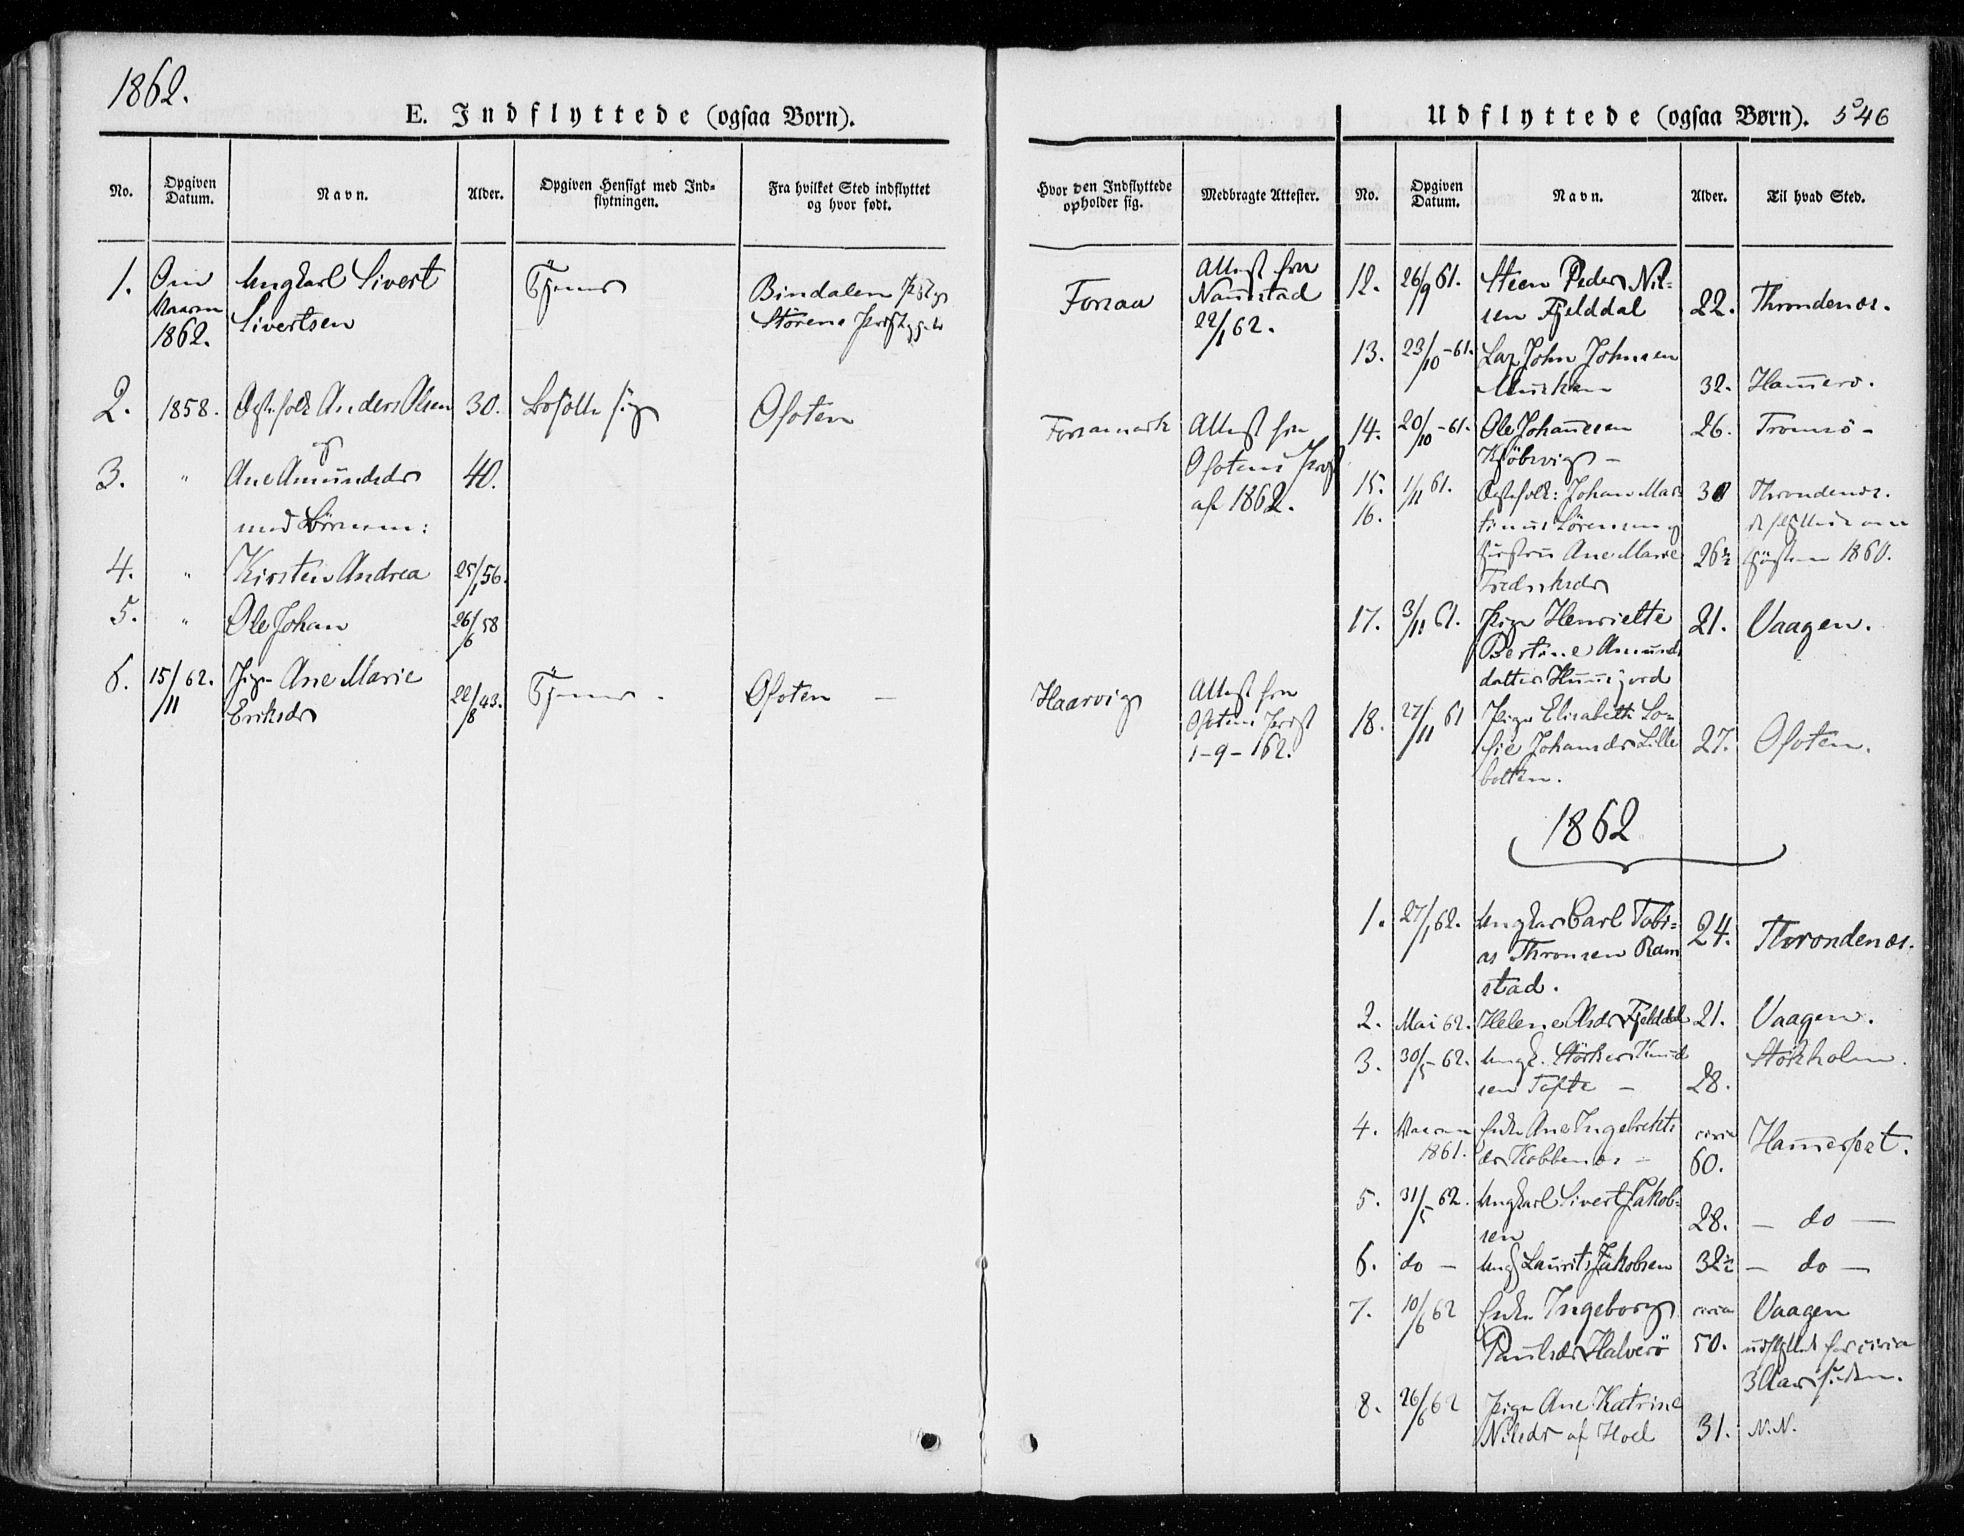 1862.
E. Indflyttede (ogsaa Børn).
No.
Opgiven Datum.
Navn.
Alder.
Opgiven Hensigt med Indflytningen.
Fra hvilket Sted indflyttet og hvor født.
Hvor den Indflyttede opholder sig.
Medbragte Attester.
1.
Om Vaaren 1862.
Ungkarl Sivert
Sivertsen
Tjener
Bindalen
Størens
Forsaa
Attest fra
Namsstad
22/1 62.
2.
1858.
Ægtefolk Anders Olsen
30.
Bosætte sig
Ofoten
Forsamark
Attest fra
Ofotens Præst
af 1862.
og
3.
"
Ane Amundsdr
40.
med Børnene:
4.
"
Kirsten Andrea
25/1 56.
5.
"
Ole Johan
26/6 58
6.
15/11 62.
Pige Ane Marie
Eriksdr
22/8 43.
Tjener -
Ofoten -
Haarvig
Attest fra
Ofotens Præst
1-9-162.
Udflyttede (ogsaa Børn). 546
No.
Opgiven Datum.
Navn.
Alder.
Til hvad Sted.
12.
26/9 61.
Steen Peder Nil=
sen Fjelddal
22.
Throndenæs.
13.
23/10-61.
Lap John Johnsen
32.
Hammerø.
14.
20/10-61.
Ole Johannesen
Kjøbsvig -
26.
Tromsø -
15.
16.
1/11 61.
Ægtefolk: Johan Mar=
tinus Sørensen og
Hustru Ane Marie
Fredriksdr
30
26½
Throndenæs.
de flyttede om
Høsten 1860.
17.
3/11 61.
Pige Henriette
Bertine Amunds
datter Huusjord
21.
Vaagen.
18.
27/11 61
Pige Elisabeth So=
fie Johansdr Lille
botten.
27.
Ofoten.
1862
1.
27/1 62.
Ungkar Carl Tobi=
as Thronsen Ram
stad.
24.
Throndenæs.
2.
Mai 62.
Helene Olsdr Fjelddal
21.
Vaagen.
3.
30/5-62.
Ungk. Størker Knud
sen Tofte -
28.
Stokholm.
4.
Vaaren
1861.
Enke Ane Ingebrikts
dr Kobbenæs -
circa
60.
Hammerfest.
5.
31/5 62.
Ungkarl Sivert Jakob=
sen
28.
- do -
6.
do -
Ungk Laurits Jakobsen
32½
- do -
7.
10/6 62
Enke Ingeborg
Paulsdr Halverø
circa
50.
Vaagen
udflyttet for circa
3 Aar siden.
8.
26/6 62
Pige Ane Katrine
Nilsdr af Hoel
31.
N.N.